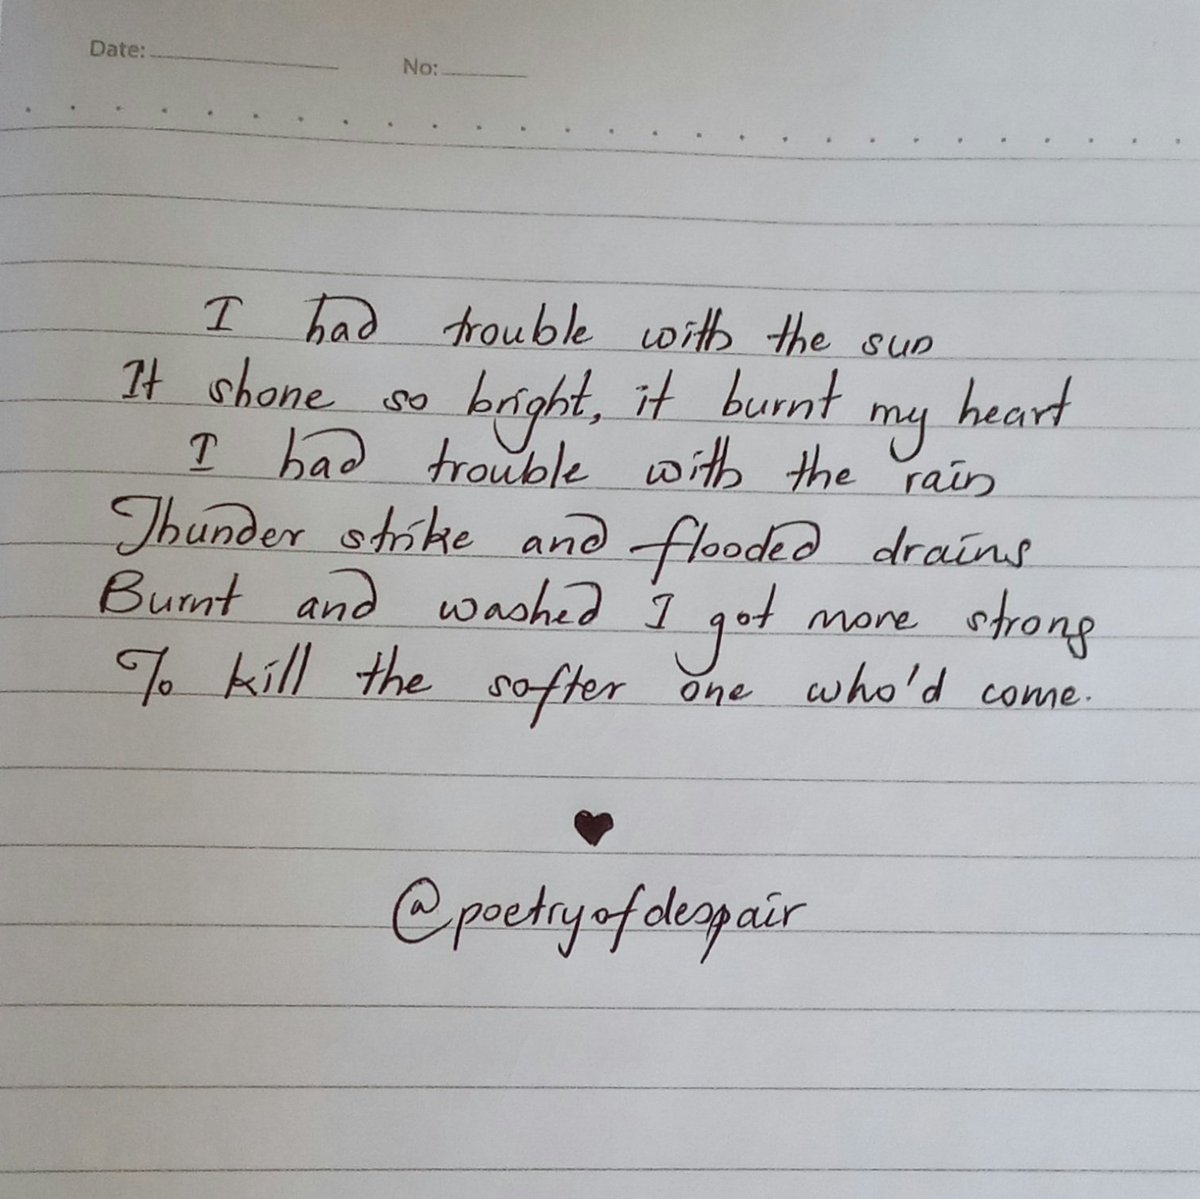 Date: No:
I had trouble with the sun
It shone so bright, it burnt my heart
I had trouble with the rain
Thunder strike and flooded drains
Burnt and washed I got more strong
To kill the softer one who'd come.
@poetryofdespair